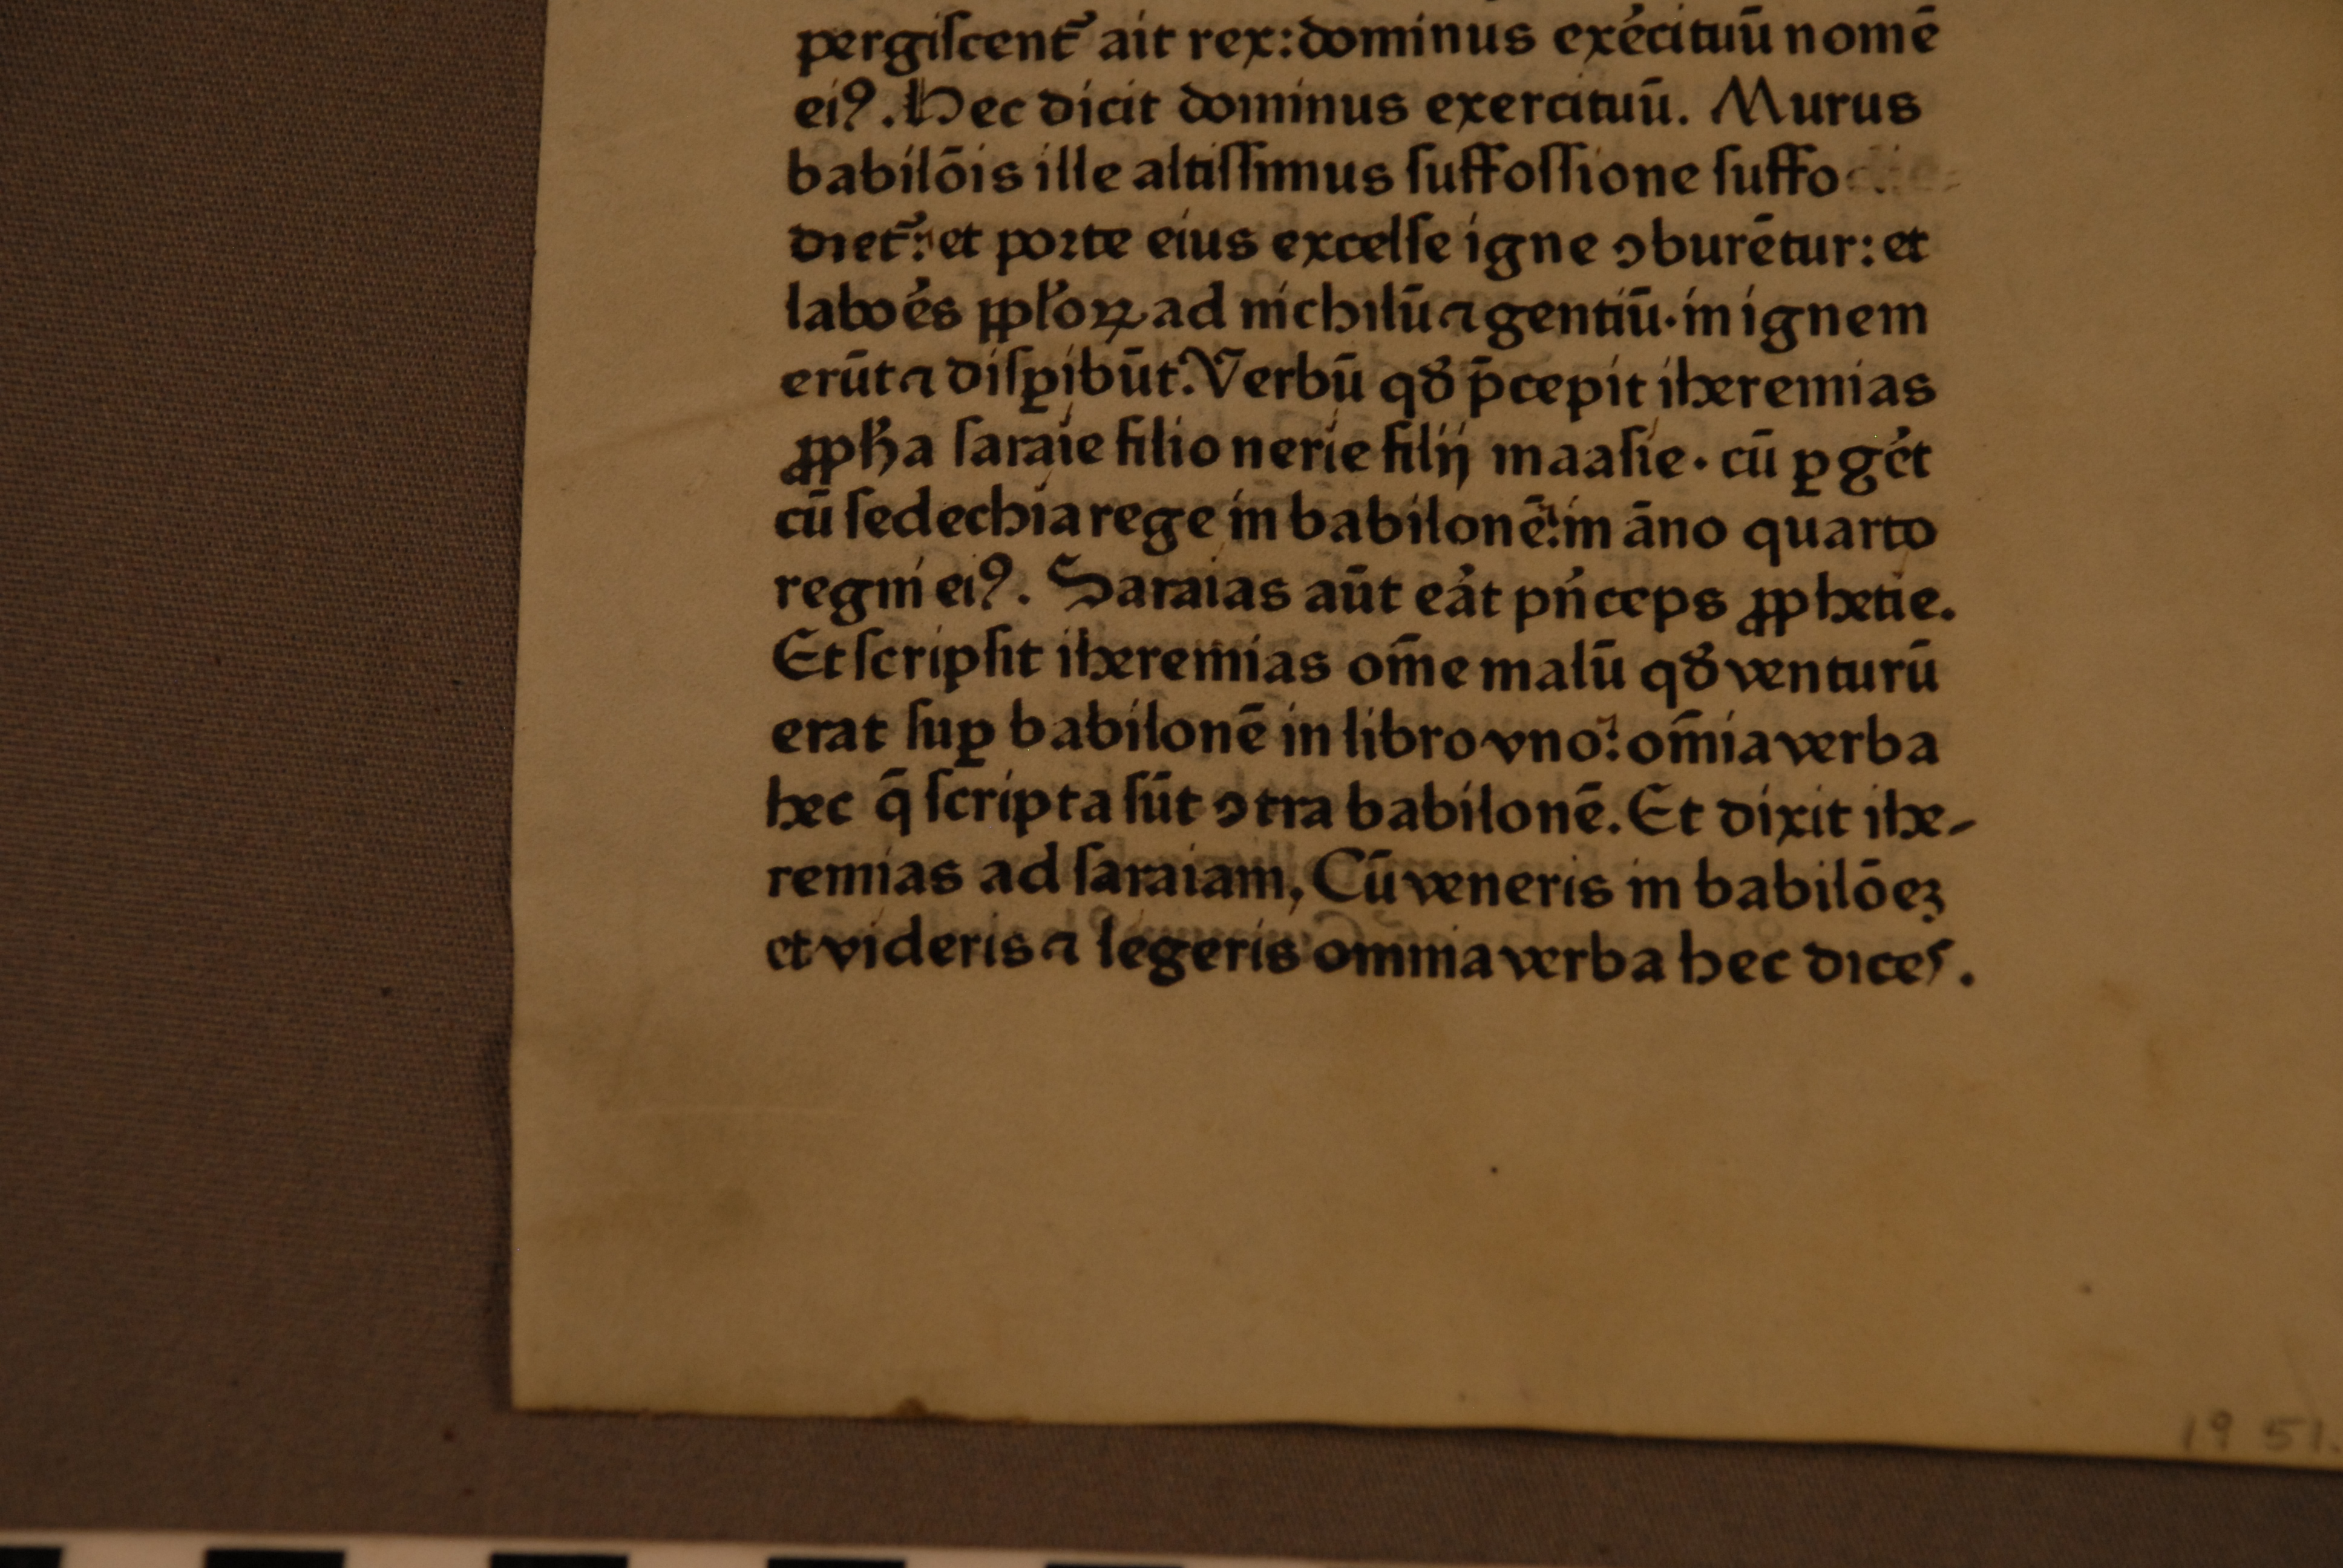 pergiſcent᷑ ait rex: dominus exe᷑cituū nomē
eiꝰ. Hec dicit dominus exercituū. Murus
babilōis ille altiſſimus ſuffoſſione ſuffo
diet᷑: et porte eius excelſe igne ꝯburētur: et
laboe᷑s ꝓpłoꝝ ad nichilū ⁊ gentiū· in ignem
erūt ⁊ diſꝑibūt. Verbū qđ p̄cepit iheremias
ꝓpħa ſaraie filio nerie filij maaſie· cū ꝑge᷑t
cū ſedechia rege in babilonē: in āno quarto
regni eiꝰ. Saraias aūt ea᷑t pn᷑ceps ꝓphetie.
Et ſcripſit iheremias om̄e malū qđ venturū
erat ſuꝑ babilonē in libro vno: om̄ia verba
hec q̄ ſcripta ſūt ꝯtra babilonē. Et dixit ihe-
remias ad ſaraiam, Cū veneris in babilōeꝫ
et videris ⁊ legeris omnia verba hec dices.
19 51.